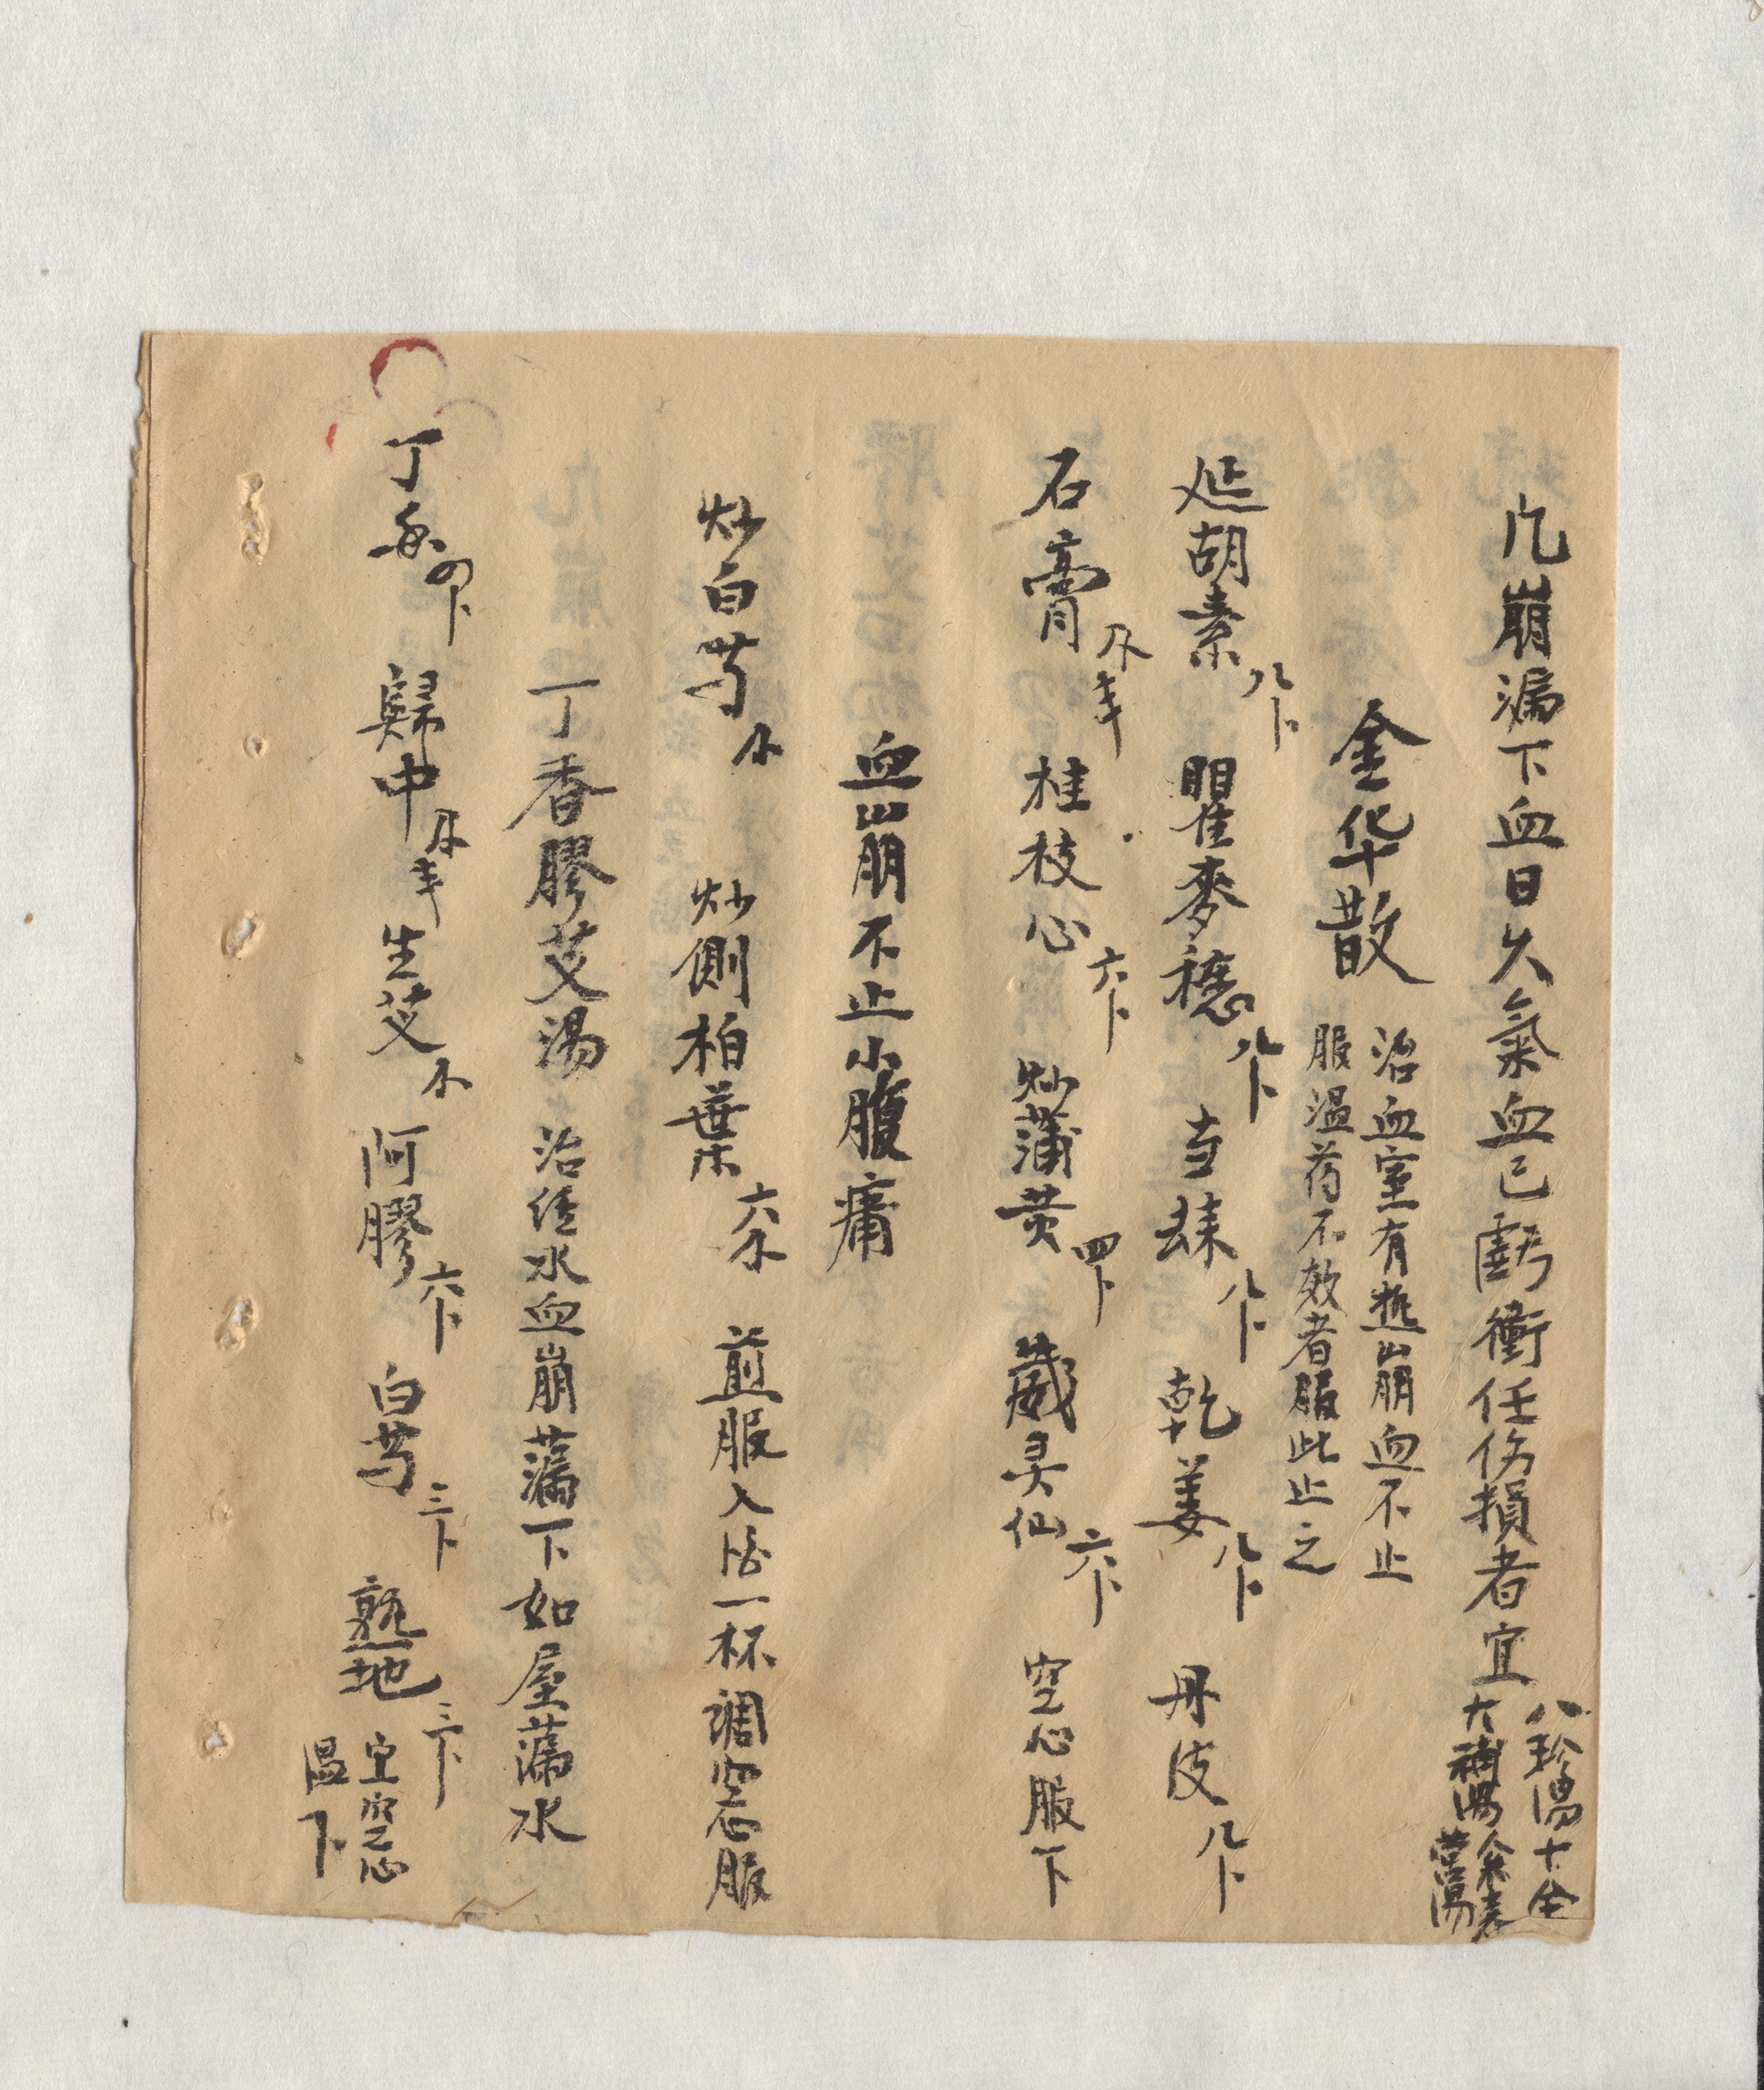 凢崩漏下血日久氣血已虧衝任伤損者宜
八珍湯十全
大補湯人參養
營湯
金华散
治血室有熱崩血不止
服温药不效者服此止之
延胡素八卜 瞿麥穗八卜 当归八卜 乾姜八卜 丹皮八卜
石膏 桂枝心六卜 炒蒲黄四卜 葳灵仙六卜 空心服下
血崩不止小腹痛
炒白芍 炒側柏葉 煎服入 一杯調空心服
丁香膠艾湯 治經水血崩漏下如屋漏水
丁香四卜 歸中 生艾 阿膠六卜 白芍三卜 熟地三卜
宜空心
温下